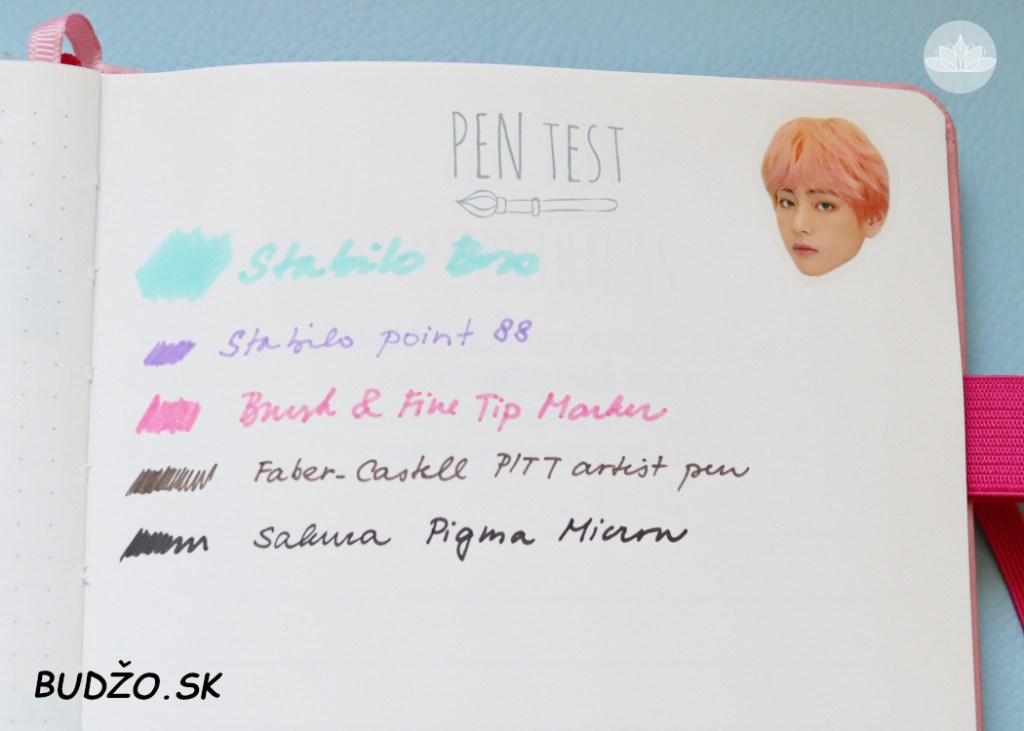 PEN TEST
Stabilo Boo
Stabilo point 88
Brush & Fine Tip Marker
Faber-Castell PITT artist pen
Sakura Pigma Micron
BUDŽO.SK